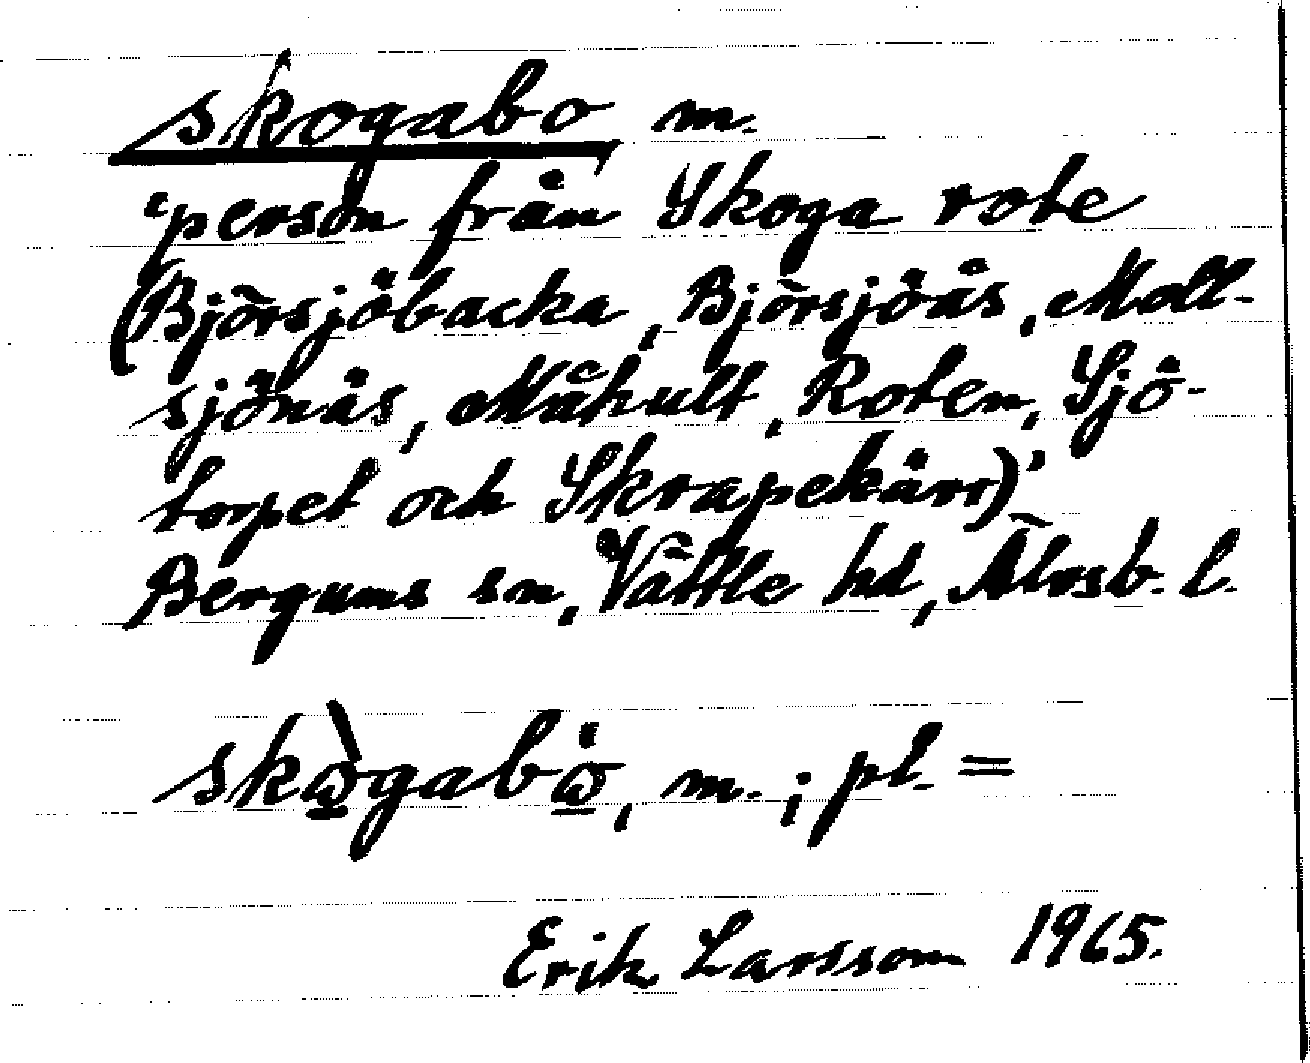 skogabo m.
'person från Skoga rote
(Björsjöbacka, Björsjöås, Moll-
sjönäs, Måhult, Roten, Sjö-
torpet och Skrapekärr)'
Bergums sn, Vättle hd, Älvsb. l.
skὼ̲gabω̲̇, m.; pl. =
Erik Larsson 1965.